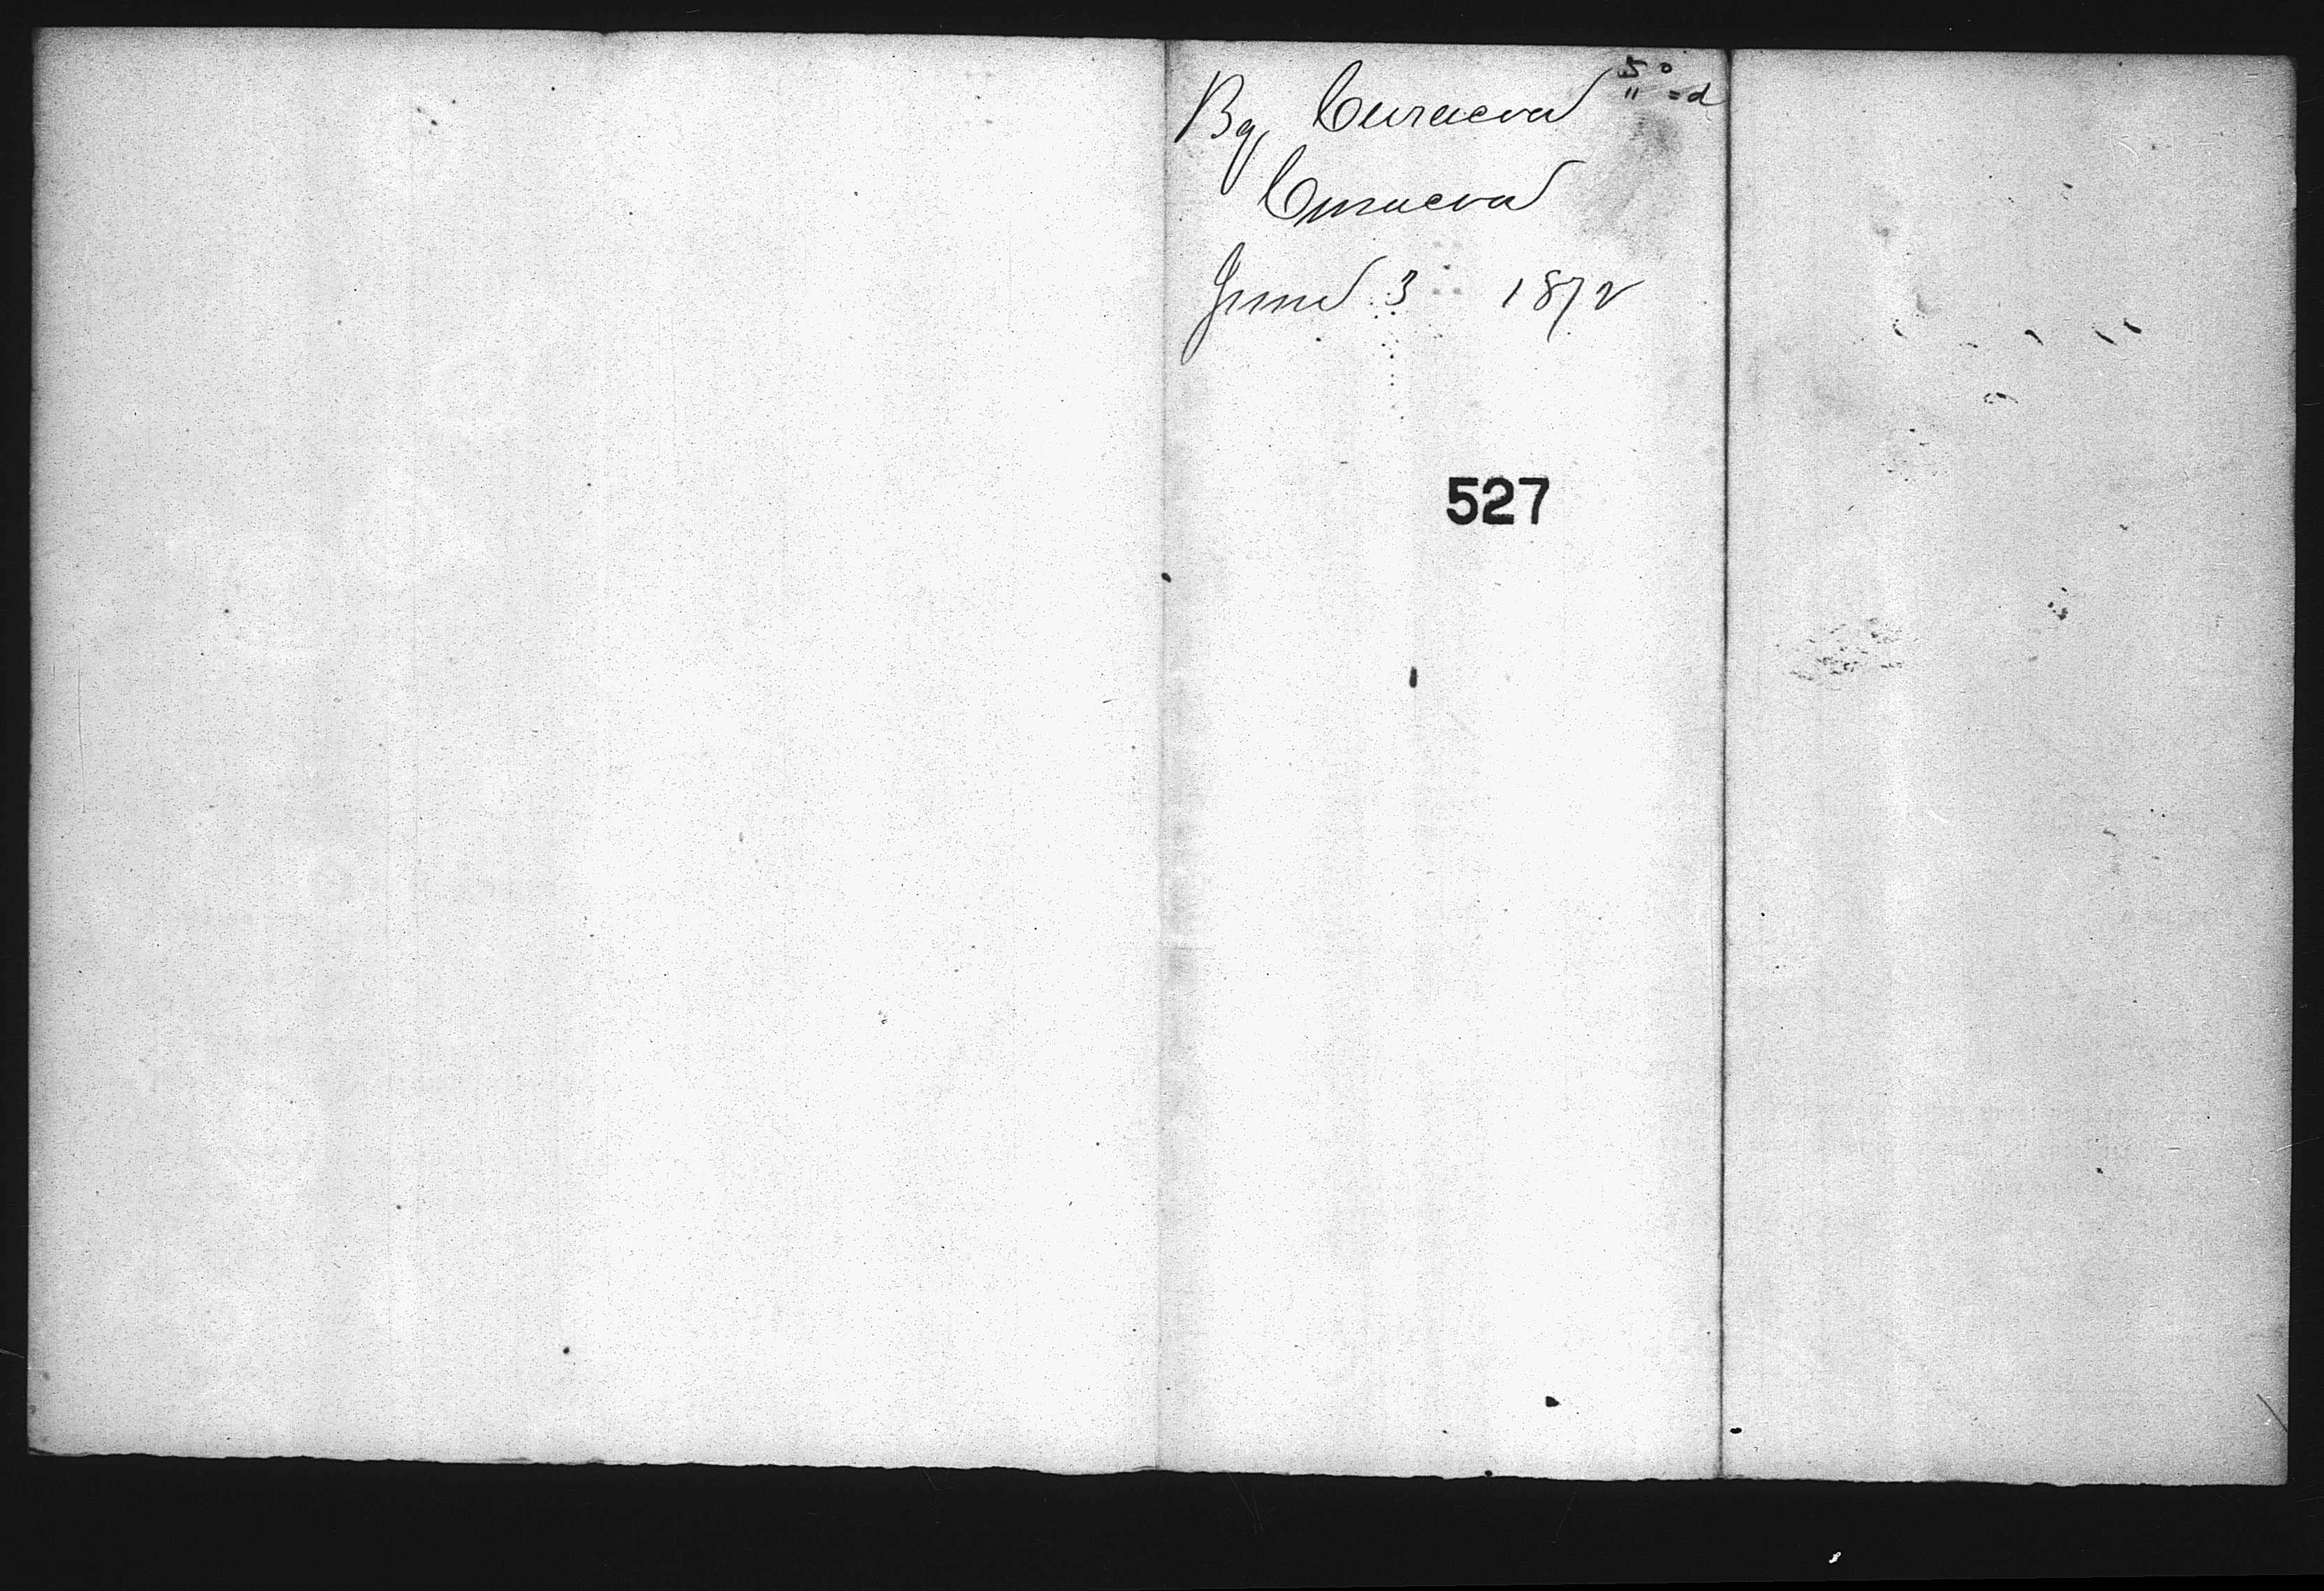 Bg Curacoa
Curacoa
June 3 1872
527